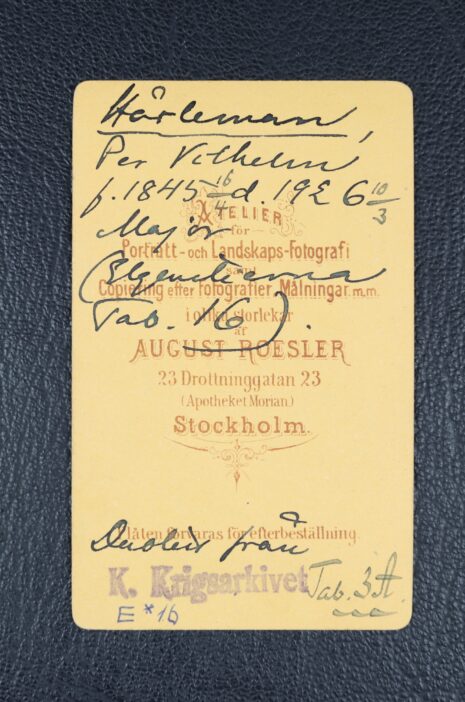 Hårleman,
Per Vilhelm
f. 1845 16/4 d. 1926 10/3
Major
ATELIER
för
Porträtt- och Landskaps-Fotografi
samt
(Elgenstierna
Copiering efter Fotografier, Målningar m.m.
Tab. 16).
i olika storlekar
af
AUGUST ROESLER
23 Drottninggatan 23
(Apotheket Morian)
Stockholm.
Plåten förvaras för efterbeställning.
från
K. Krigsarkivet
Tab. 3A.
E*16